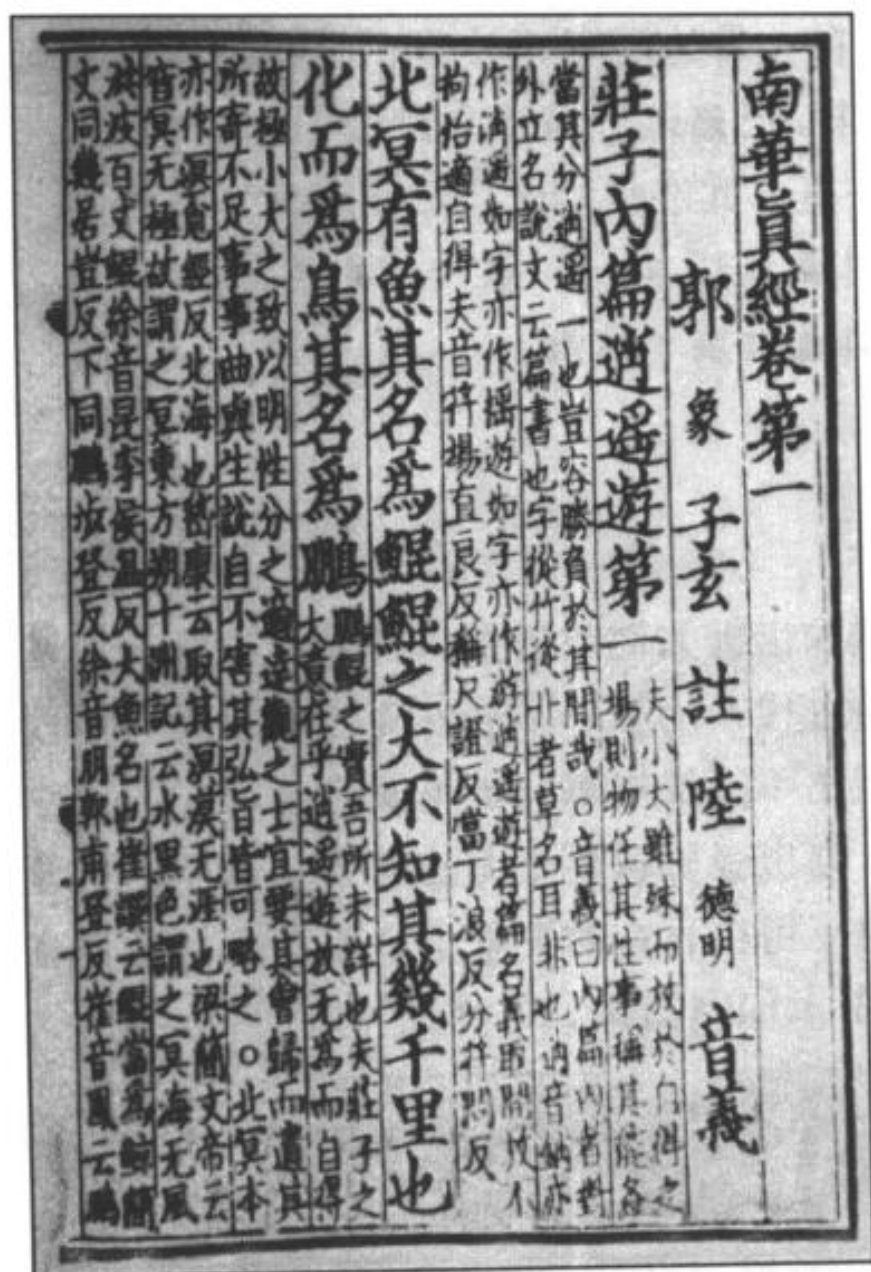 南華眞經卷第一
郭象子玄註陸德明音義
莊子內篇逍遙遊第一
夫小大雖殊而放於自得之
場則物任其性事稱其能各
當其分逍遙一也豈容勝負於其間哉○音義曰內篇內者對
外立名說文云篇書也字從竹從艸者草名耳非也逍音銷亦
作消遙如字亦作搖遊如字亦作游逍遙遊者篇名義取閒放不
拘怡適自得夫音符場直良反稱尺證反當丁浪反分符問反
北冥有魚其名爲鯤鯤之大不知其幾千里也
化而爲鳥其名爲鵬
鵬鯤之實吾所未詳也夫莊子之
大意在乎逍遙遊放无爲而自得
故極小大之致以明性分之適達觀之士宜要其會歸而遺其
所寄不足事事曲與生說自不害其弘旨皆可略之○北冥本
亦作溟覓經反北海也嵇康云取其溟漠无涯也梁簡文帝云
窅冥无極故謂之冥東方朔十洲記云水黑色謂之冥海无風
洪波百丈鯤徐音昆李侯溫反大魚名也崔譔云鯤當爲鯨簡
文同幾居豈反下同鵬步登反徐音朋郭甫登反崔音鳳云鵬